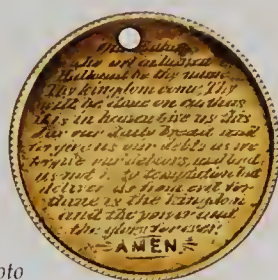 Our Father
who art in heaven
Hallowed be thy name
Thy kingdom come, Thy
will be done on earth as
it is in heaven Give us this
day our daily bread and
forgive us our debts as we
forgive our debtors, and lead
us not in to temptation but
deliver us from evil for
thine is the kingdom
and the power and
the glory forever
AMEN
oto